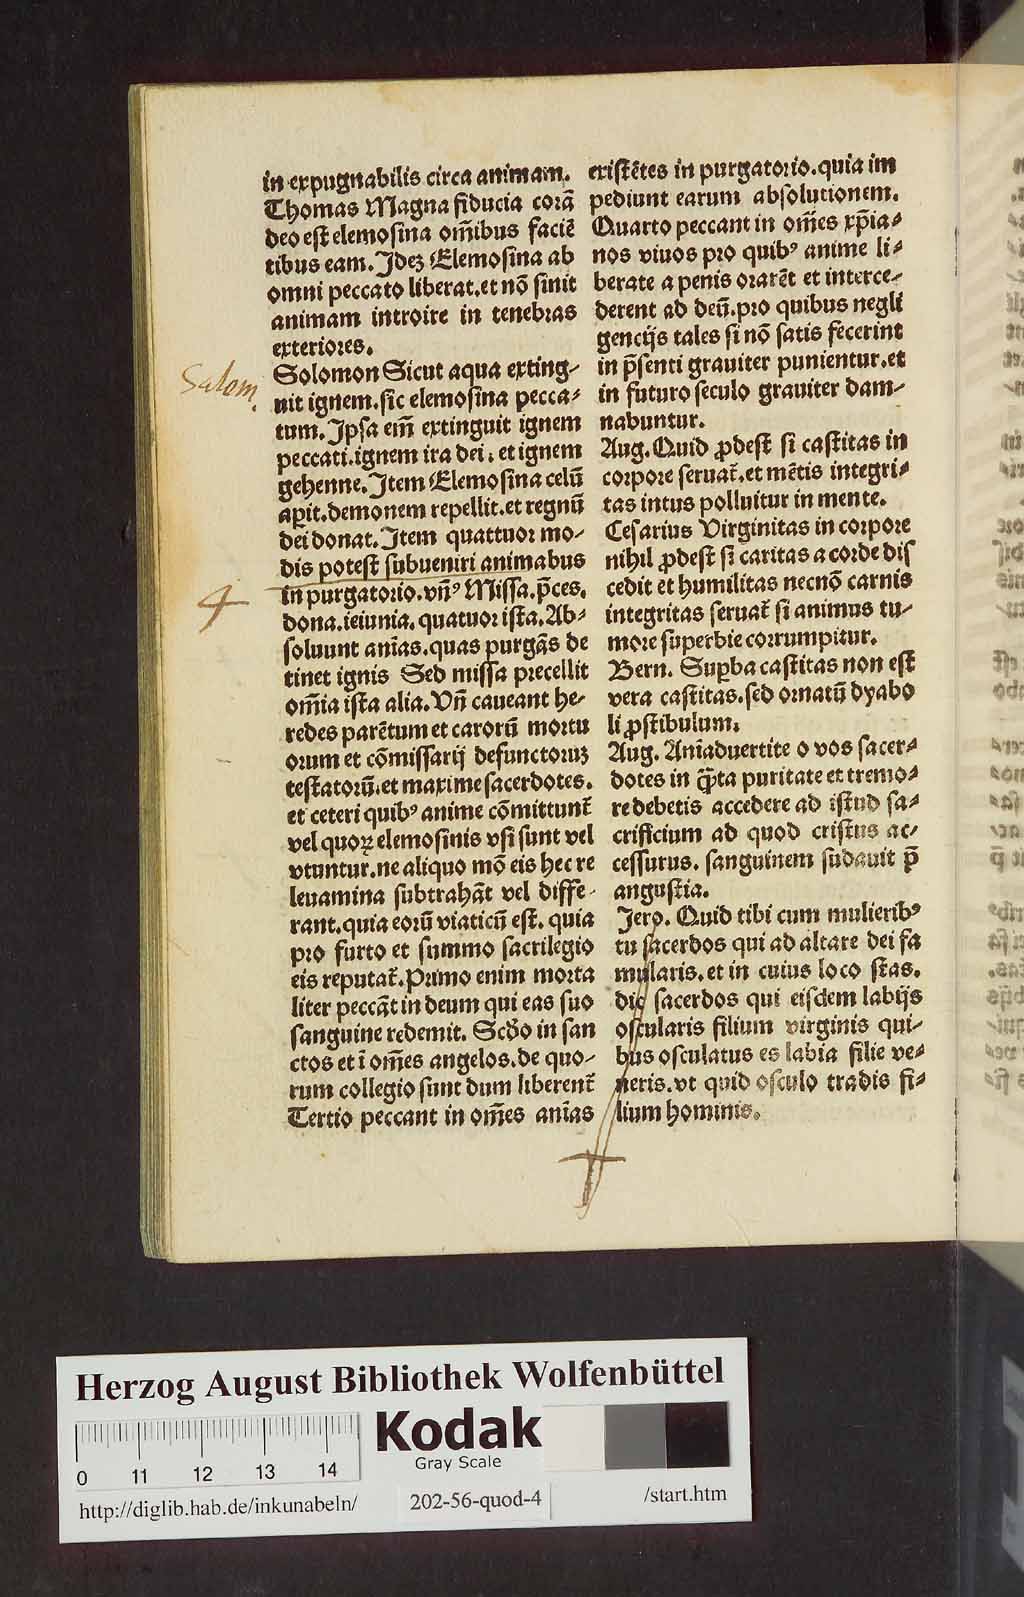 in expugnabilis circa animam.
Thomas Magna fiducia corā
deo est elemosina om̄ibus faciē
tibus eam. Idez Elemosina ab
omni peccato liberat. et nō sinit
animam introire in tenebras
exteriores.
Salom.
Solomon Sicut aqua exting-
uit ignem. sic elemosina pecca-
tum. Ipsa em̄ extinguit ignem
peccati. ignem ira dei. et ignem
gehenne. Item Elemosina celū
aꝑit. demonem repellit. et regnū
dei donat. Item quattuor mo-
dis potest subueniri animabus
4
in purgatorio. vn̄ꝰ Missa. p̄ces.
dona. ieiunia. quatuor ista. Ab-
soluunt anīas. quas purgās de
tinet ignis Sed missa precellit
om̄ia ista alia. Vn̄ caueant he-
redes parētum et carorū mortu
orum et cōmissarij defunctoruz
testatorū. et maxime sacerdotes.
et ceteri quibꝰ anime cōmittunt̄
vel quoꝝ elemosinis vsi sunt vel
vtuntur. ne aliquo mō eis hec re
leuamina subtrahāt vel diffe-
rant. quia eorū viaticū est. quia
pro furto et summo sacrilegio
eis reputat̄. Primo enim morta
liter peccāt in deum qui eas suo
sanguine redemit. Scdo in san
ctos et ī om̄es angelos. de quo-
rum collegio sunt dum liberent̄
Tertio peccant in om̄es anīas
existētes in purgatorio. quia im
pediunt earum absolutionem.
Quarto peccant in om̄es xp̄ia-
nos viuos pro quibꝰ anime li-
berate a penis orarēt et interce-
derent ad deū. pro quibus negli
gencijs tales si nō satis fecerint
in p̄senti grauiter punientur. et
in futuro seculo grauiter dam-
nabuntur.
Aug. Quid ꝓdest si castitas in
corpore seruat̄. et mētis integri-
tas intus polluitur in mente.
Cesarius Virginitas in corpore
nihil ꝓdest si caritas a corde dis
cedit et humilitas necnō carnis
integritas seruat̄ si animus tu-
more superbie corrumpitur.
Bern. Suꝑba castitas non est
vera castitas. sed ornatū dyabo
li ꝓstibulum.
Aug. Anīaduertite o vos sacer-
dotes in q̄ta puritate et tremo-
re debetis accedere ad istud sa-
crificium ad quod cristus ac-
cessurus. sanguinem sudauit p̄
angustia.
Jero. Quid tibi cum mulieribꝰ
tu sacerdos qui ad altare dei fa
mularis. et in cuius loco stas.
dic sacerdos qui eisdem labijs
oscularis filium virginis qui-
bus osculatus es labia filie ve-
neris. vt quid osculo tradis fi-
lium hominis.
Herzog August Bibliothek Wolfenbüttel
Kodak
Gray Scale
0 11 12 13 14
http://diglib.hab.de/inkunabeln/ 202-56-quod-4 /start.htm